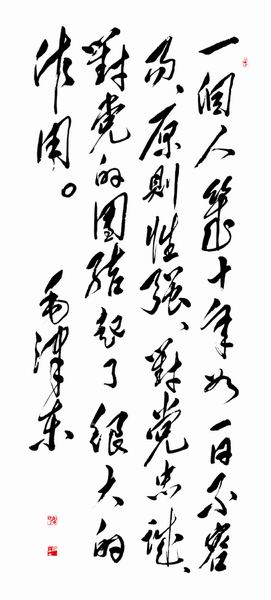 一個人幾十年如一日不容
易、原則性強、對黨忠誠、
對黨的團結起了很大的
作用。
毛澤東